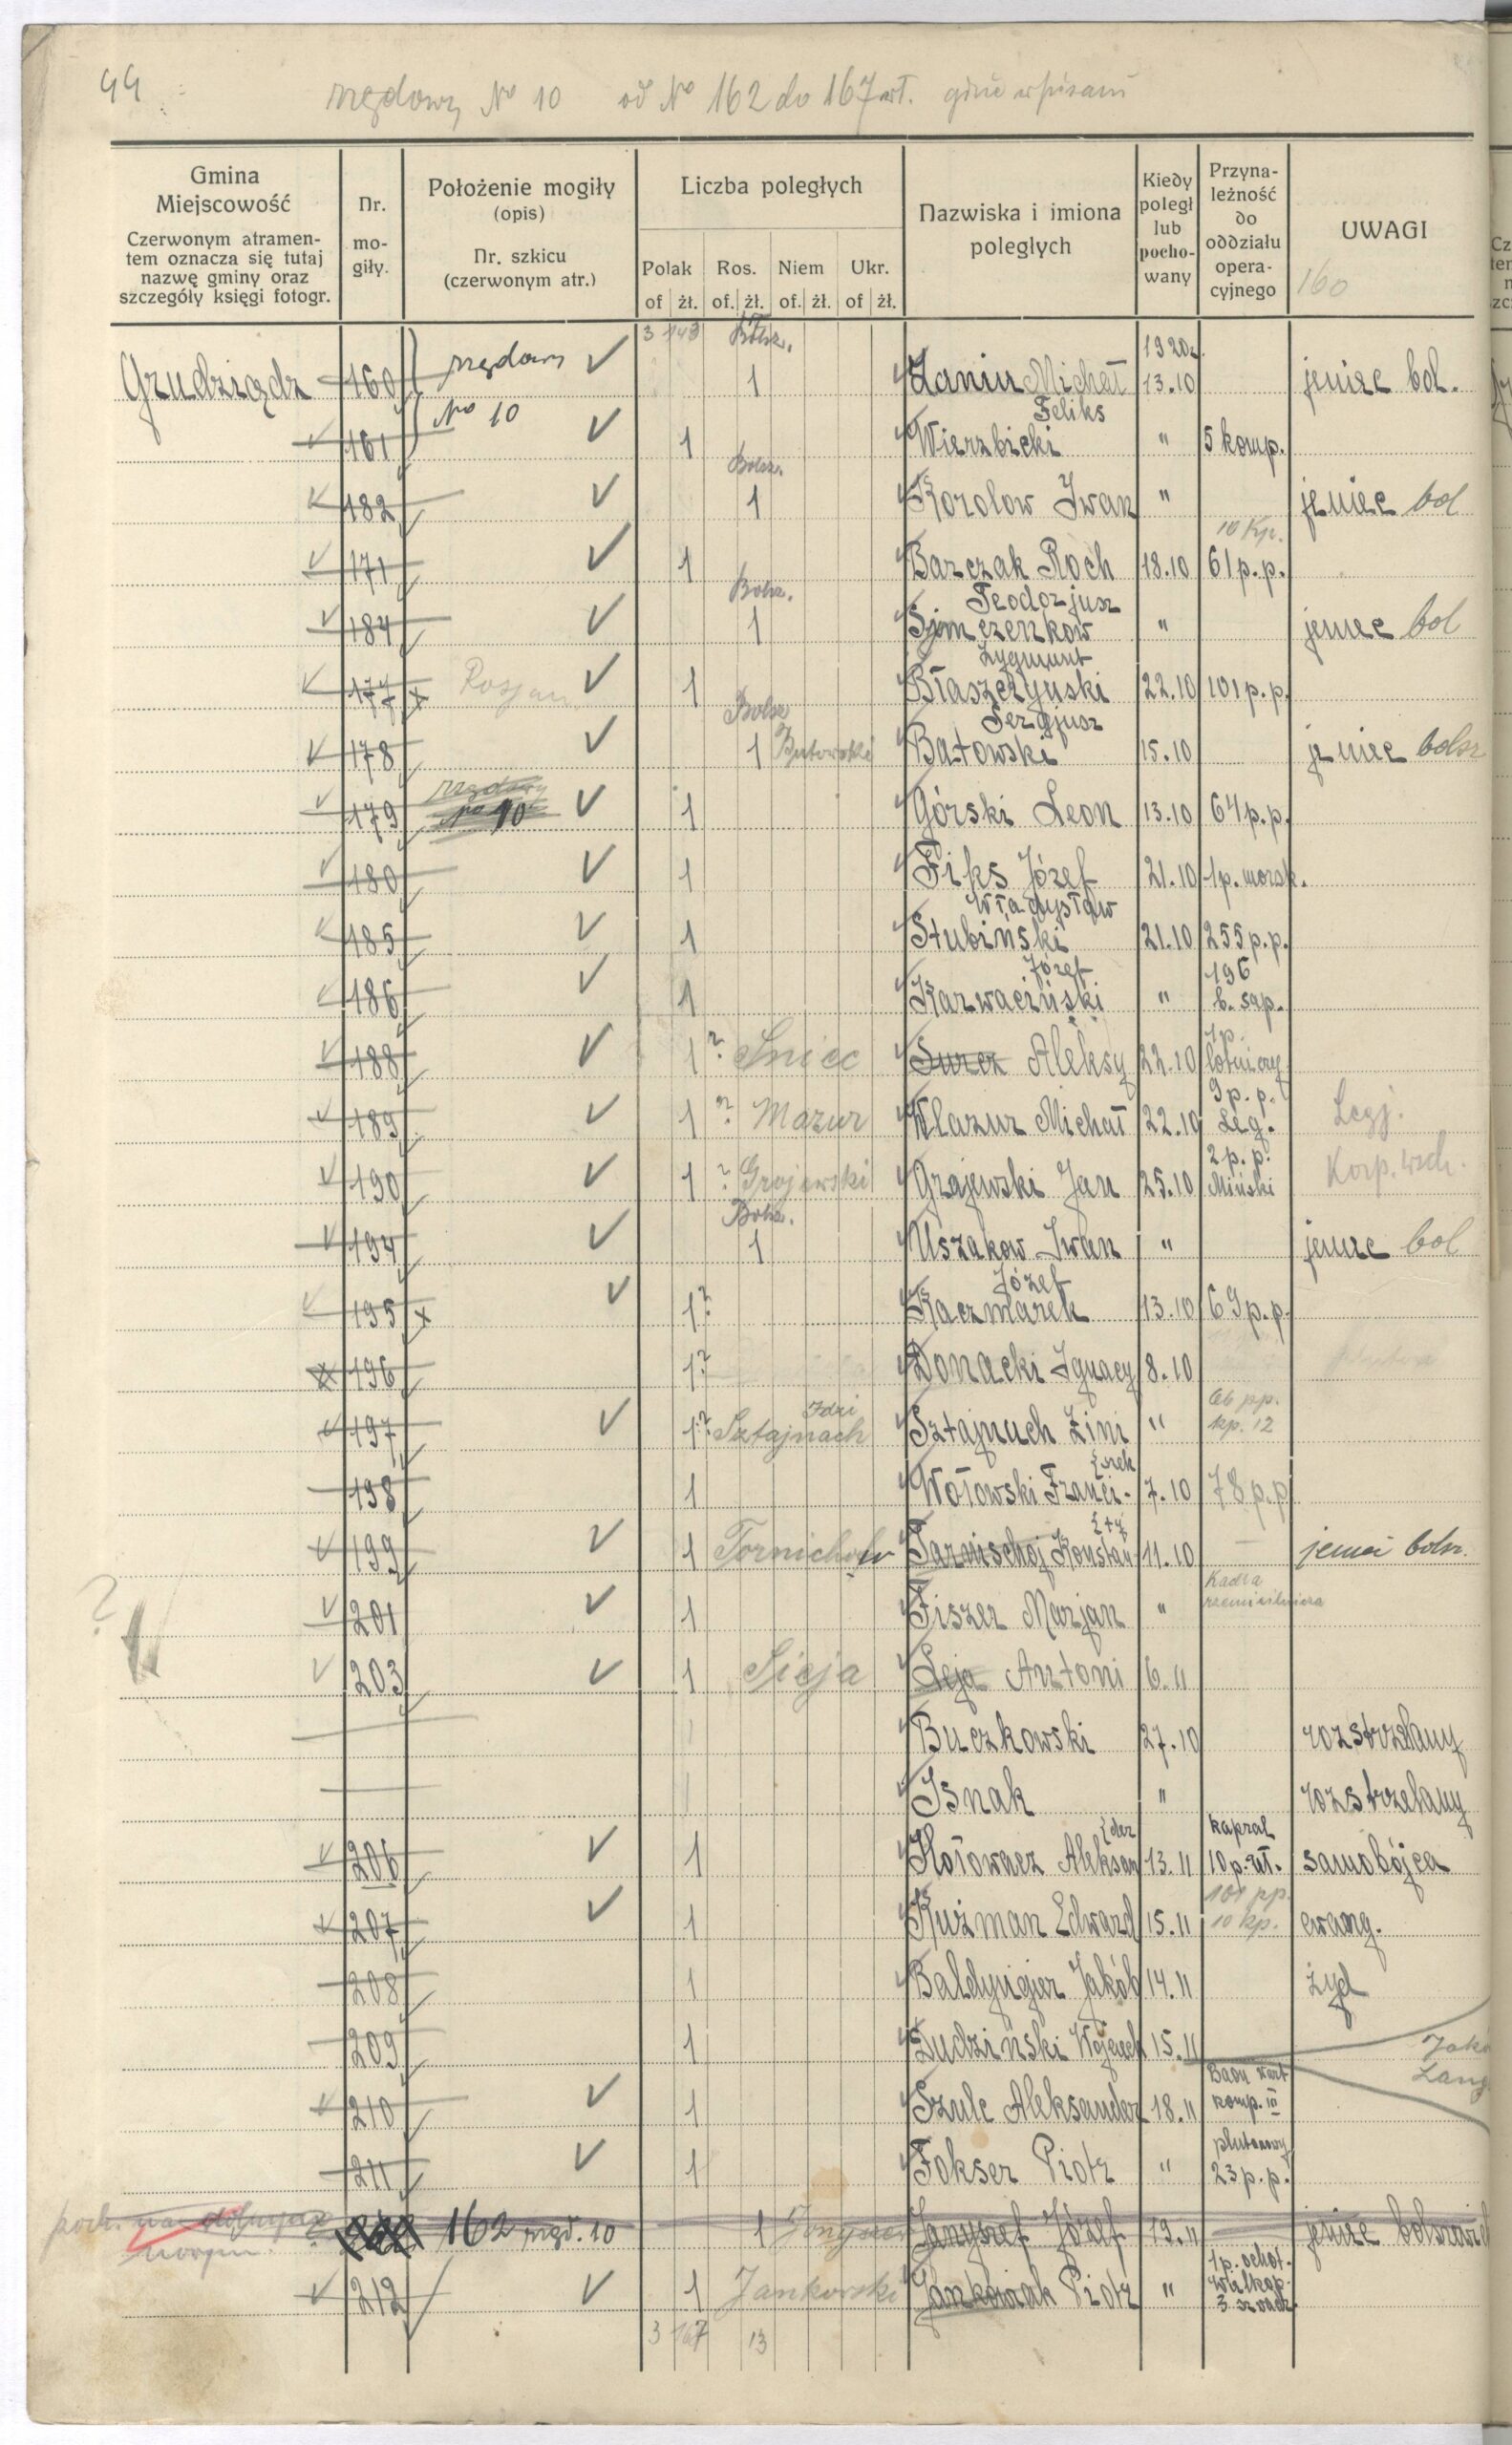 44
No 10 od No 162 do 167
Gmina
Miejscowość
Czerwonym atramen-
tem oznacza się tutaj
nazwę gminy oraz
szczegóły księgi fotogr.
Nr.
mo-
giły.
Położenie mogiły
(opis)
Nr. szkicu
(czerwonym atr.)
Liczba poległych
Polak Ros. Niem Ukr.
of żł. of. żł. of. żł. of żł.
Nazwiska i imiona
poległych
Kiedy
poległ
lub
pocho-
wany
Przyna-
leżność
do
oddziału
opera-
cyjnego
UWAGI
160
3 143 Bolsz. 1920r.
Grudziądz 160 rzędowy 1 Zaniur Michał 13.10 jeniec bol.
No 10 Feliks
161 1 Wierzbicki " 5 komp.
Bolsz.
182 1 Korolow Iwan " jeniec bol
10 Kp.
171 1 Barczak Roch 18.10 61 p.p.
Bolsz. Teodorjusz
184 1 Sjomczenkow " jeniec bol
Zygmunt
177 x Rosjan 1 Błaszczyński 22.10 101 p.p.
Bolsz Sergjusz
178 1 Butowski Batowski 15.10 jeniec bolsz
179 rzędowy No 10 1 Górski Leon 13.10 64 p.p.
180 1 Fiks Józef 21.10 1 p. morsk.
Władysław
185 1 Stubiński 21.10 255 p.p.
Józef 196
186 1 Karwaciński " b. sap.
1 p.
188 1? Sniec Surcz Aleksy 22.10 lotniczy
9 p. p.
189 1? Mazur Wlazur Michał 22.10 Leg. Legj.
2 p. p.
190 1? Grojewski Grajewski Jan 25.10 Miński Korp. wsch.
Bolsz.
194 1 Uszakow Iwan " jeniec bol
Józef
195 x 1? Kaczmarek 13.10 69 p.p.
196 1? Donacki Ignacy 8.10
Idzi 66 pp.
197 1? Sztajnach Sztajnuch Zini " kp. 12
szek
198 1 Wołowski Franci- 7.10 78 p.p
sty
199 1 Tornichow Tarnischoj Konstan- 11.10 — jeniec bolsz.
? Kadra
201 1 Fiszer Marjan " rzemieślnicza
203 1 Sieja Leja Antoni 6.11
Buczkowski 27.10 rozstrzelany
Isnak " rozstrzelany
der kapral
206 1 Hołowacz Aleksan 13.11 10 p. uł. samobójca
101 pp.
207 1 Kuźman Edward 15.11 10 kp. ewang.
208 1 Baldyngier Jakób 14.11 żyd
209 1 Żudziński Wojciech 15.11
Baon wart
210 1 Szulc Aleksander 18.11 komp. III
plutonowy
211 1 Fokser Piotr " 23 p.p.
poch. na
162 rzęd. 10 1 Janyszef Józef 19.11 jeniec bolszewic
1 p. ochot.
Wielkop.
212 1 Jankowski Jankowiak Piotr " 3 szwadr.
3 167 13